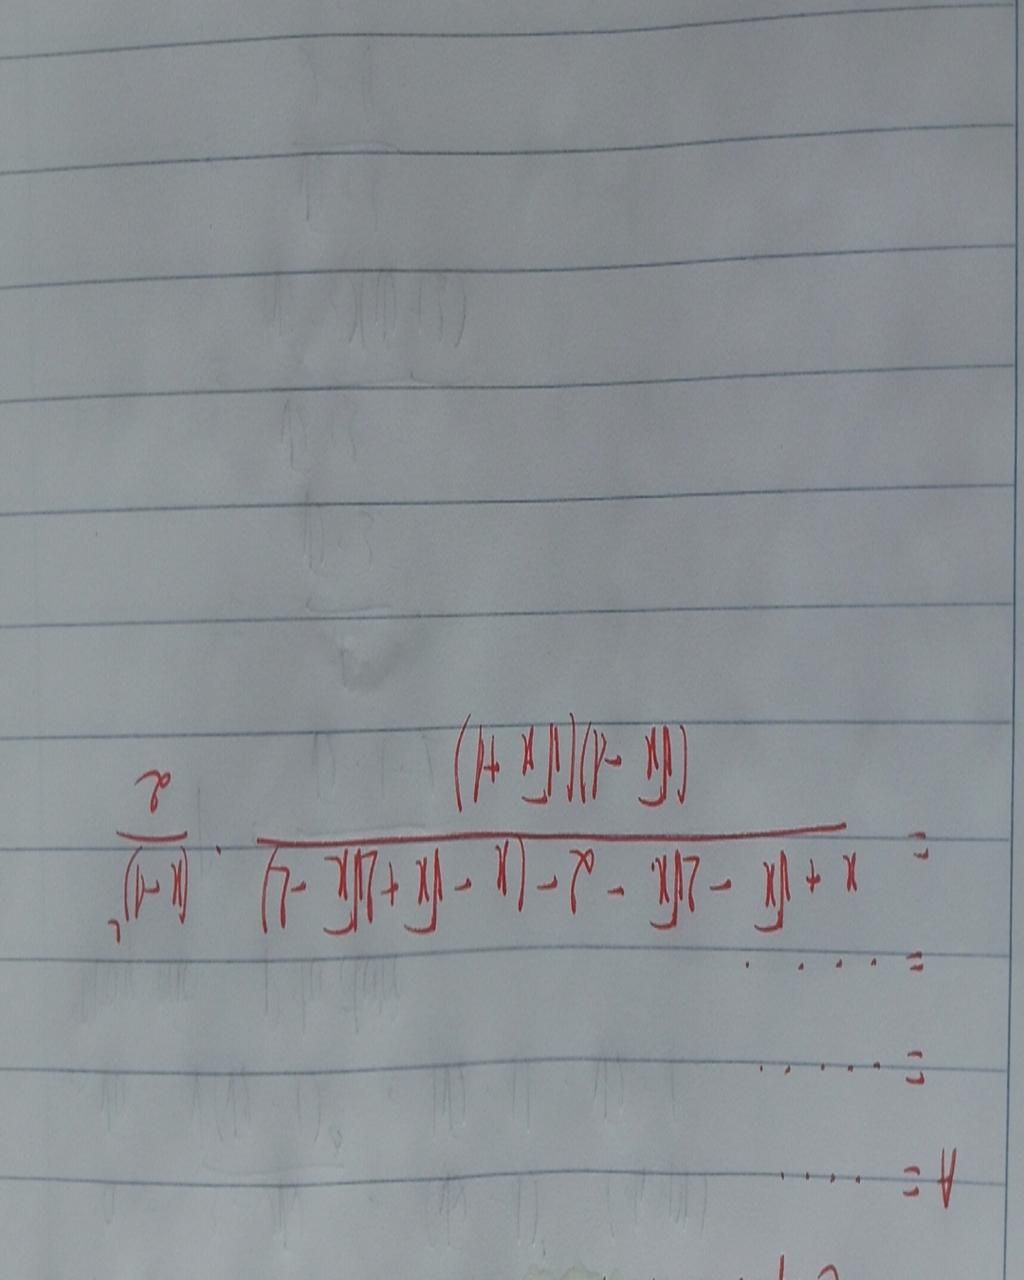 A = ....
= .....
= ....
= \frac{x + \sqrt{x} - 2\sqrt{x} - 2 - (x - \sqrt{x} + 2\sqrt{x} - 2)}{(\sqrt{x} - 1)(\sqrt{x} + 1)} . \frac{(x - 1)^2}{2}